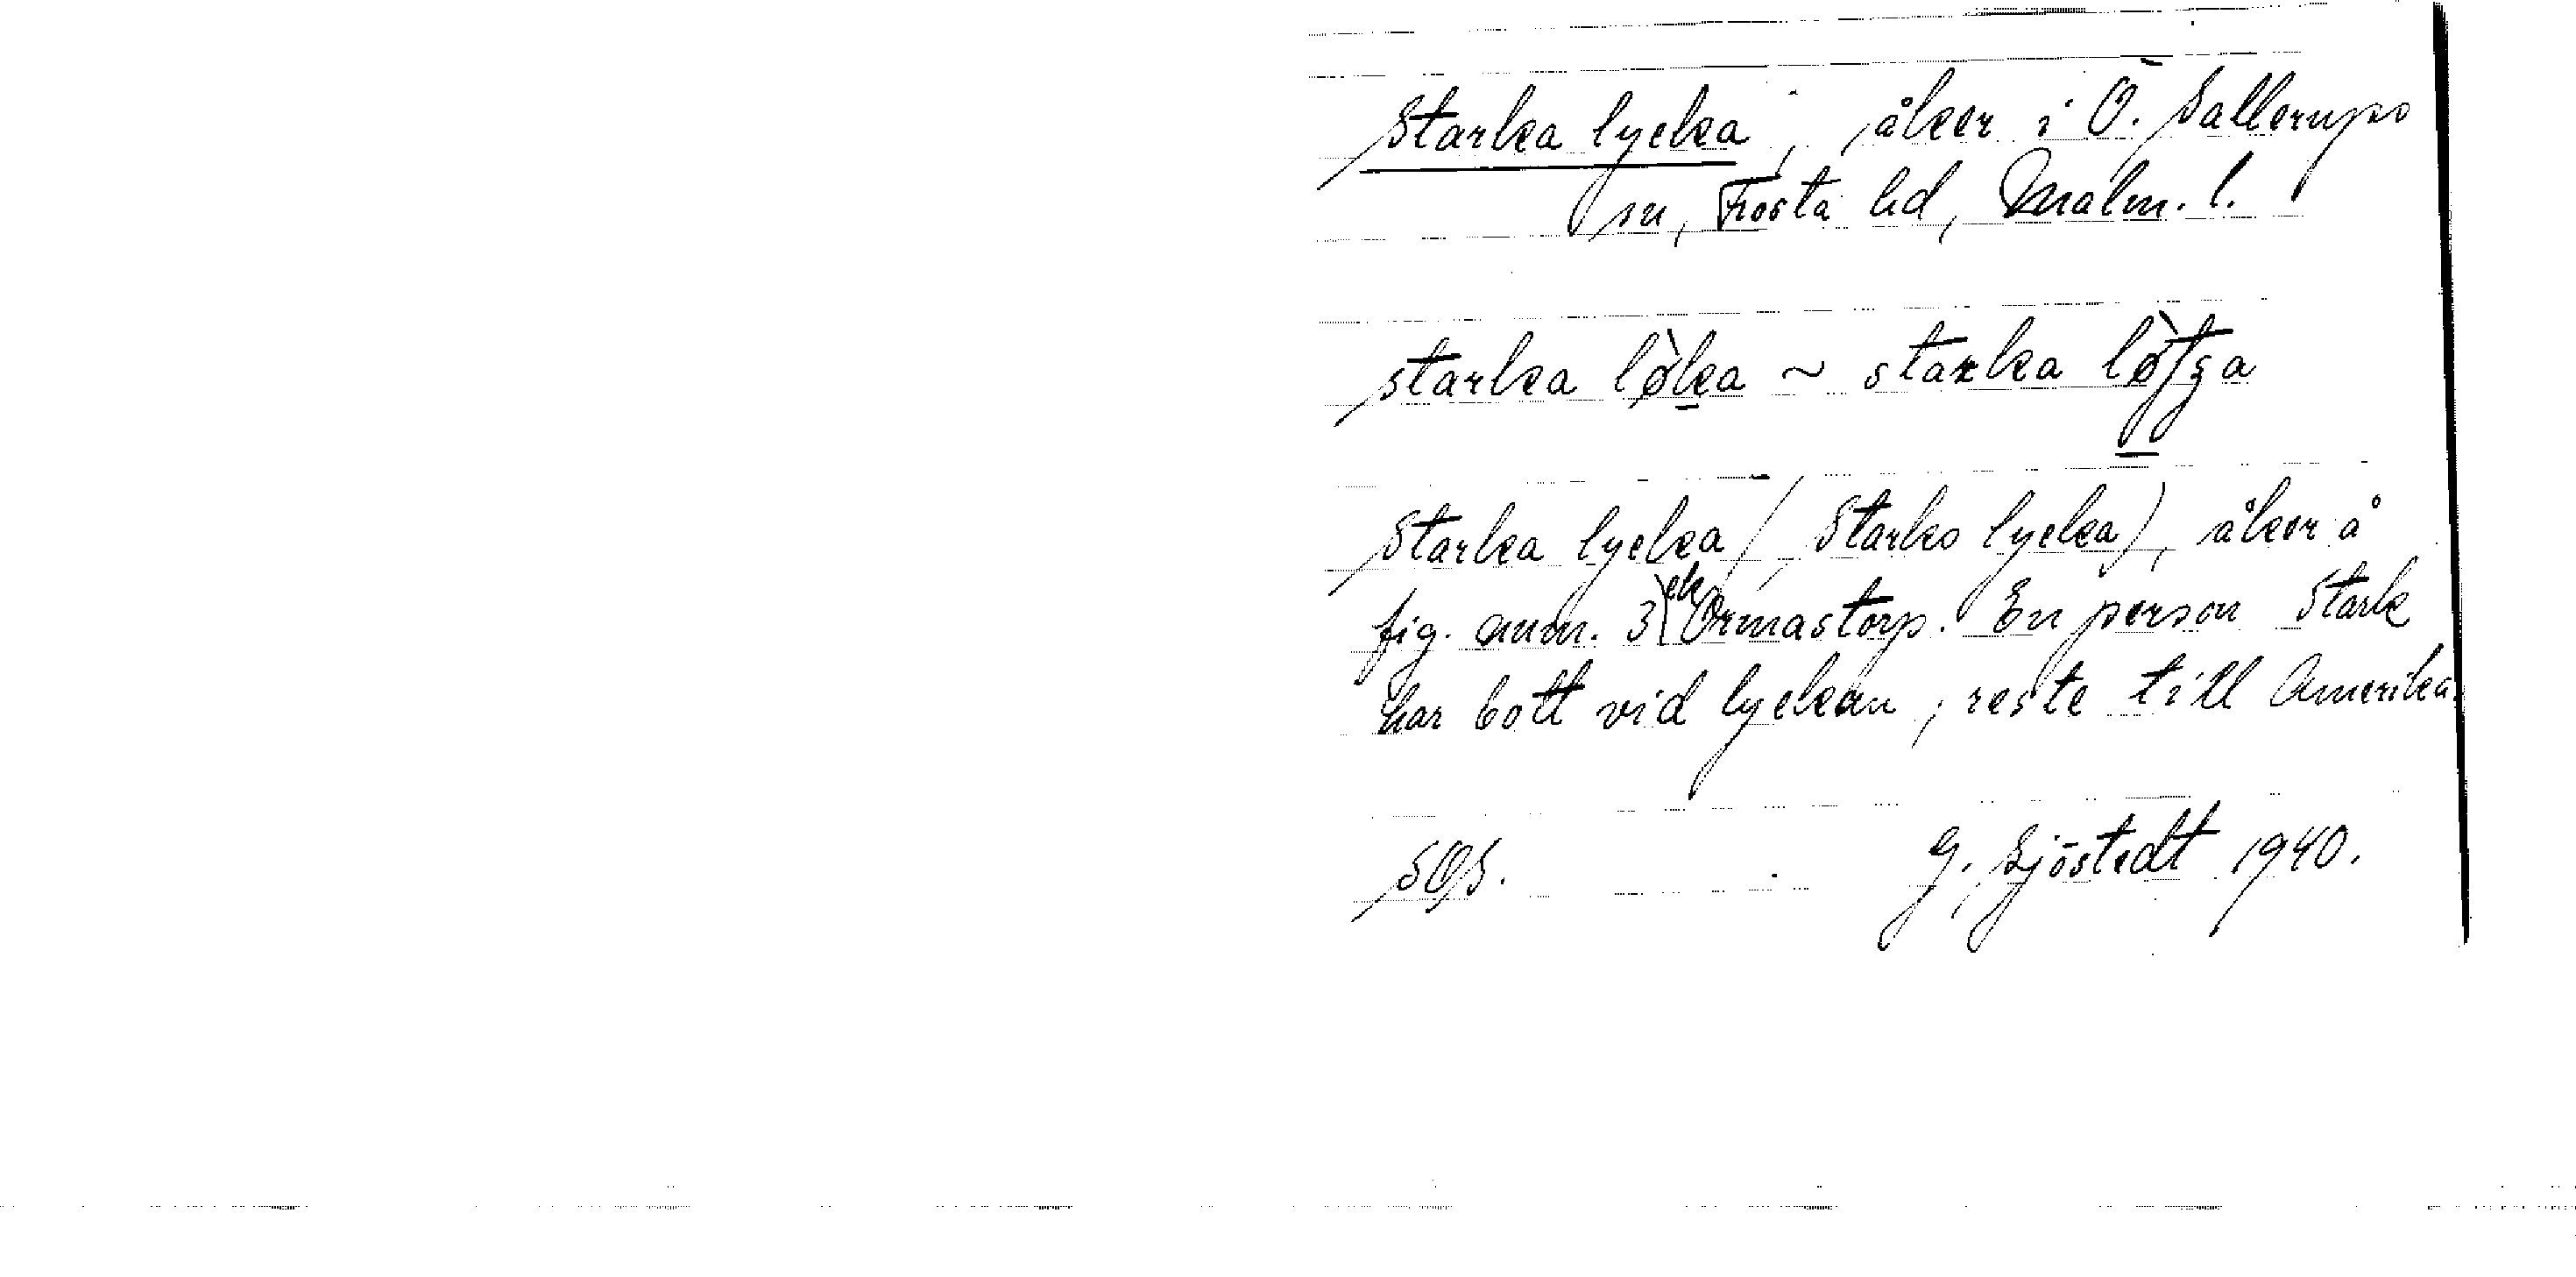 Starka lycka, åker i Ö. Sallerups
sn, Frosta hd, Malm. l.
starka lø̀ka ~ starka lø̀tʃa
Starka lycka (Starks lycka), åker å
fig. num. 3 ek Ormastorp. En person Stark
har bott vid lyckan, reste till Amerika.
SOS. G. Sjöstedt 1940.